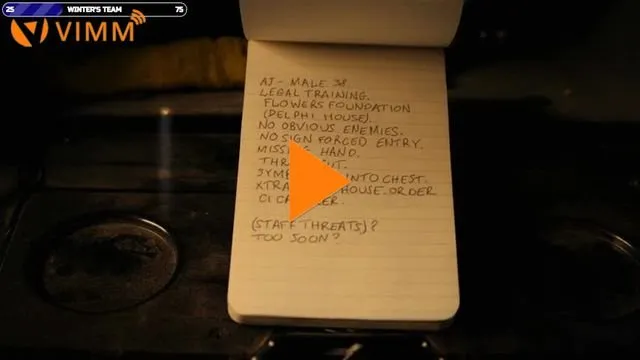 25 WINTER'S TEAM 75
VIMM
AJ - MALE 38.
LEGAL TRAINING.
FLOWERS FOUNDATION
(DELPHI HOUSE).
NO OBVIOUS ENEMIES.
NO SIGN FORCED ENTRY.
HAND.
INTO CHEST.
HOUSE ORDER
(STAFF THREATS)?
TOO SOON?